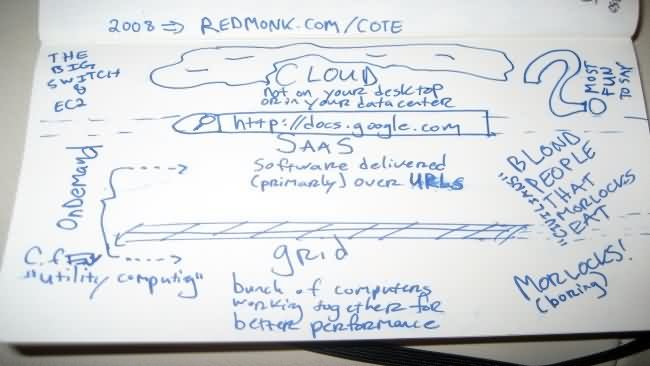 2008 ⇒ REDMONK.COM/COTE
THE
BIG
SWITCH
&
EC2
CLOUD
not on your desktop
or in your datacenter
?
MOST
FUN
TO SAY
http://docs.google.com
SAAS
Software delivered
(primarily) over URLs
OnDemand
BLOND
PEOPLE
THAT
MORLOCKS
EAT
C.f.
"utility computig"
grid
bunch of computers
working together for
better performance
MORLOCKS!
(boring)